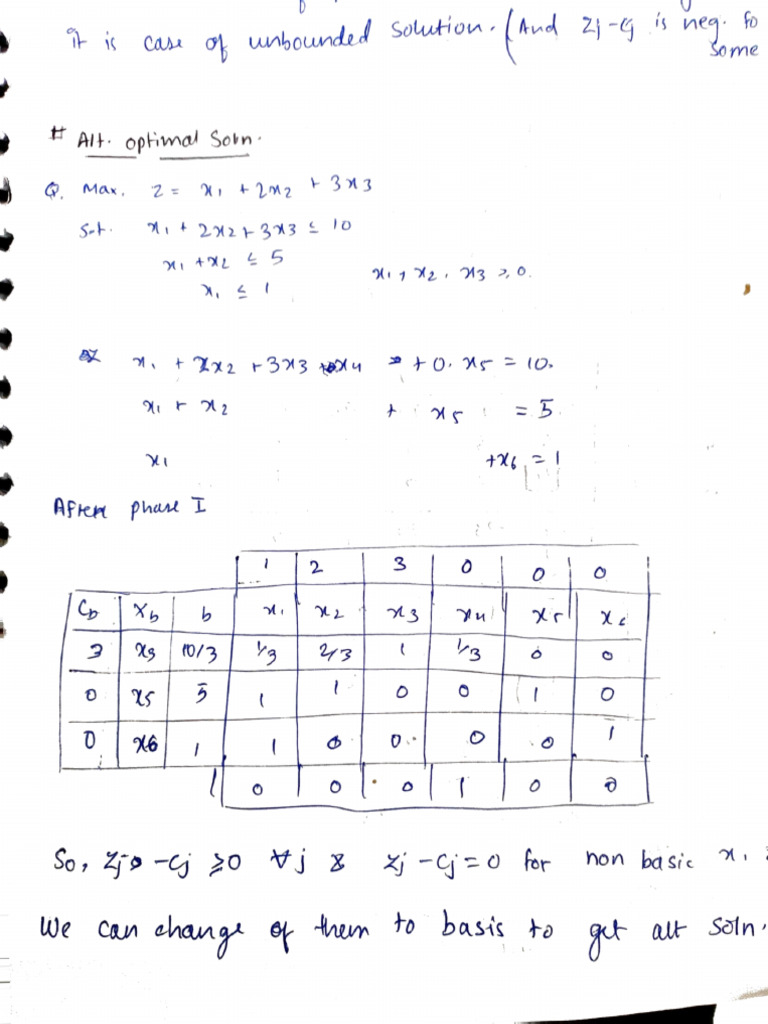 it is case of unbounded solution. (And zj-cj is neg. fo
some
# Alt. optimal Soln.
Q. Max. z = x1 + 2x2 + 3x3
S.t. x1 + 2x2 + 3x3 ≤ 10
x1 + x2 ≤ 5
x1 ≤ 1 x1, x2, x3 ≥ 0.
x1 + 2x2 + 3x3 + x4 + 0. x5 = 10.
x1 + x2 + x5 = 5
x1 + x6 = 1
After phase I
1 2 3 0 0 0
Cb Xb b x1 x2 x3 x4 x5 x6
3 x3 10/3 1/3 2/3 1 1/3 0 0
0 x5 5 1 1 0 0 1 0
0 x6 1 1 0 0 0 0 1
0 0 0 1 0 0
So, zj - cj ≥ 0 ∀ j & zj - cj = 0 for non basic x1
We can change of them to basis to get alt soln.